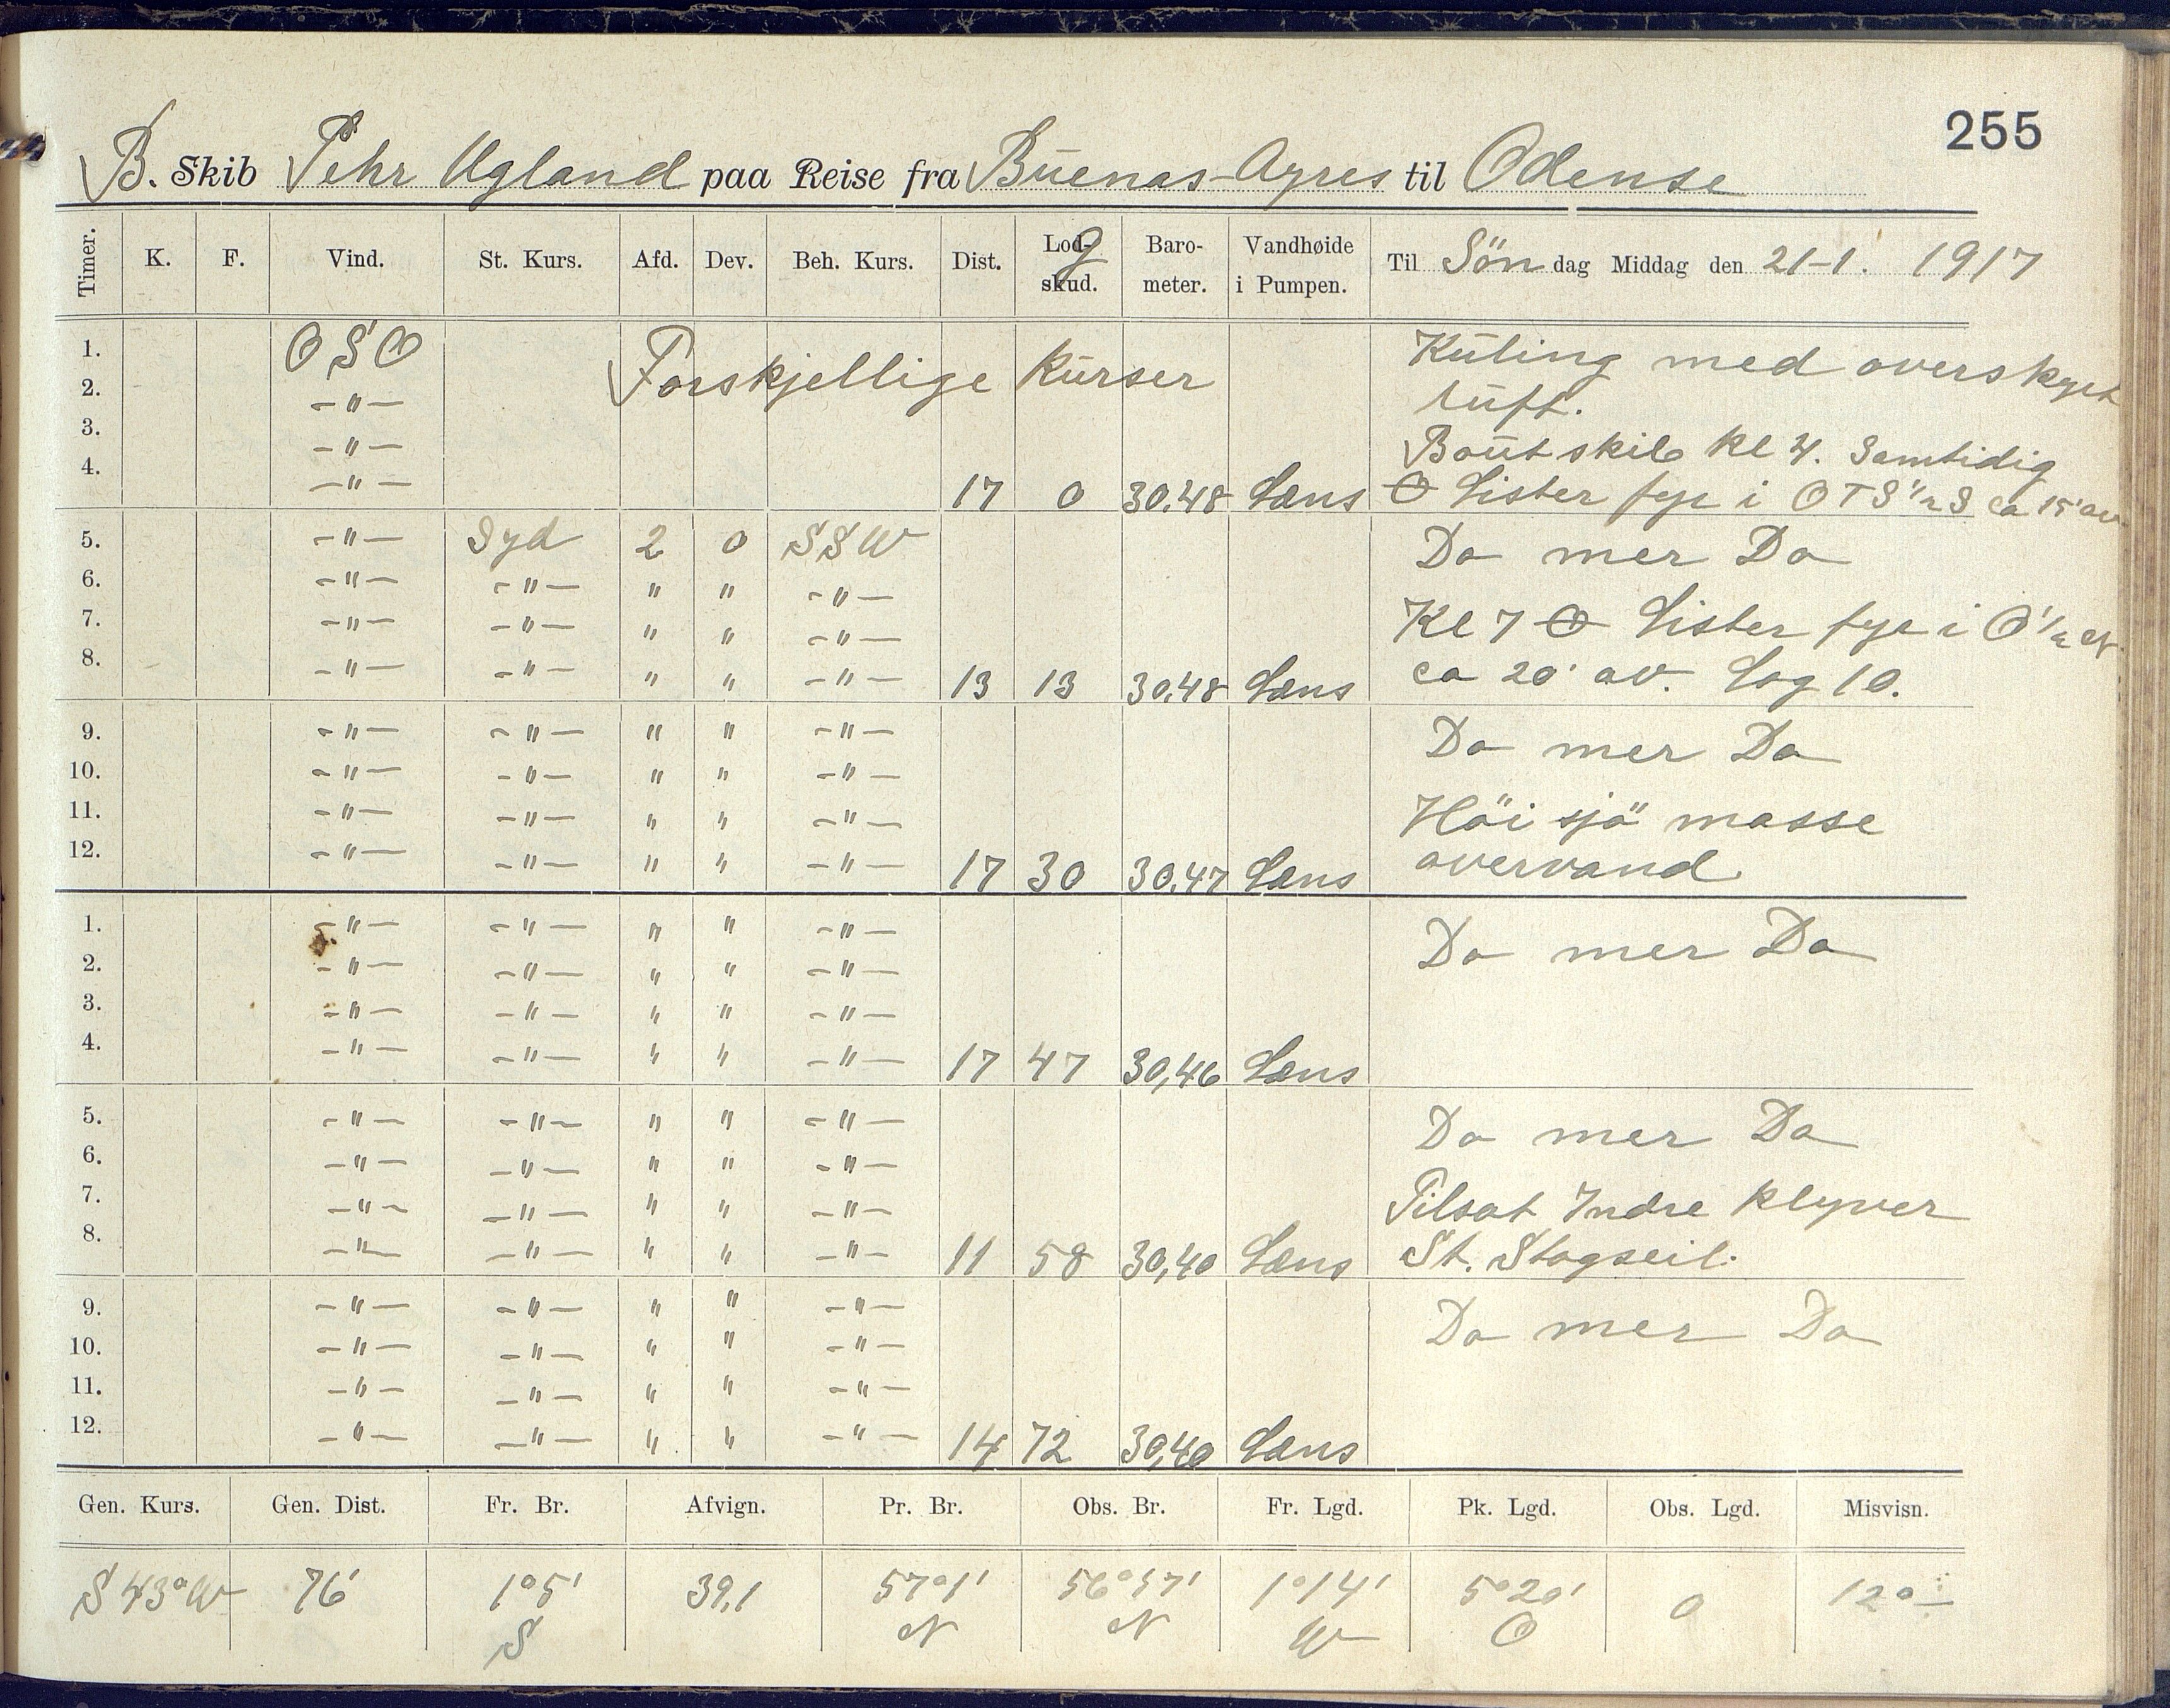 255
B. Skib Pehr Ugland paa Reise fra Buenas-Ayres til Odense
Timer. K. F. Vind. St. Kurs. Afd. Dev. Beh. Kurs. Dist. Log skud. Barometer. Vandhøide i Pumpen. Til Søndag Middag den 21-1. 1917
1. OSO Forskjellige Kurser Kuling med overskyet
2. -"- luft.
3. -"- Bautskib Kl 4. Samtidig
4. -"- 17 0 30.48 Læns Lister fyr i OTS 1/2 S ca 15' av
5. -"- Syd 2 0 SSW Do mer Do
6. -"- -"- " " -"-
7. -"- -"- " " -"- Kl 7 Lister fyr i O 1/2 N
8. -"- -"- " " -"- 13 13 30.48 Læns ca 20' av. Log 10.
9. -"- -"- " " -"- Do mer Do
10. -"- -"- " " -"-
11. -"- -"- " " -"- Höi sjö masse
12. -"- -"- " " -"- 17 30 30.47 Læns overvand.
1. -"- -"- " " -"- Do mer Do
2. -"- -"- " " -"-
3. -"- -"- " " -"-
4. -"- -"- " " -"- 17 47 30,46 Læns
5. -"- -"- " " -"- Do mer Do
6. -"- -"- " " -"-
7. -"- -"- " " -"- Tilsat Indre Klyver
8. -"- -"- " " -"- 11 58 30,40 Læns St. Stagseil.
9. -"- -"- " " -"- Do mer Do
10. -"- -"- " " -"-
11. -"- -"- " " -"-
12. -"- -"- " " -"- 14 72 30,40 Læns
Gen. Kurs. Gen. Dist. Fr. Br. Afvign. Pr. Br. Obs. Br. Fr. Lgd. Pk. Lgd. Obs. Lgd. Misvisn.
S 43° W 76' 1°5' 39,1 57°1' 56°57' 1°14' 5°20' 0 12°
S N N W O